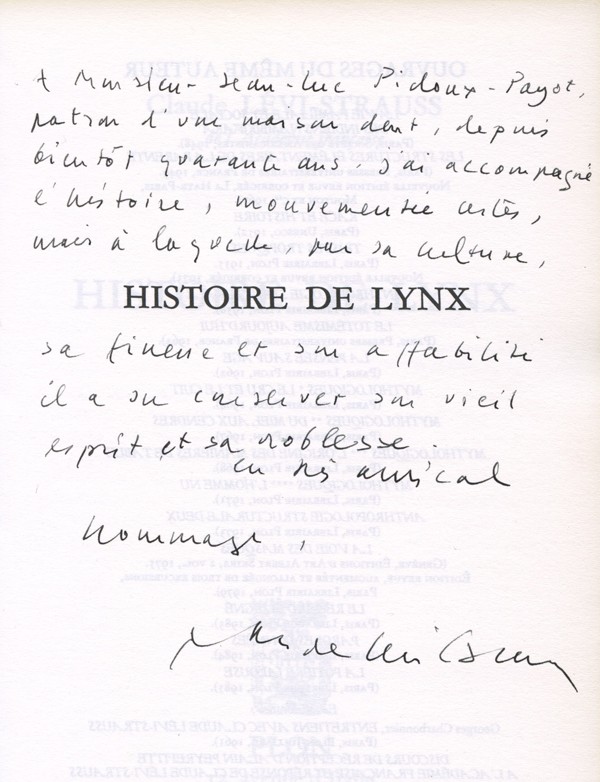 A Monsieur Jean-Luc Pidoux-Payot,
patron d'une maison dont, depuis
bientôt quarante ans, j'ai accompagné
l'histoire, mouvementée certes,
mais à laquelle, par sa culture,
HISTOIRE DE LYNX
sa finesse et son affabilité
il a su conserver son vieil
esprit et sa noblesse.
En très amical
hommage,
Claude Lévi-Strauss